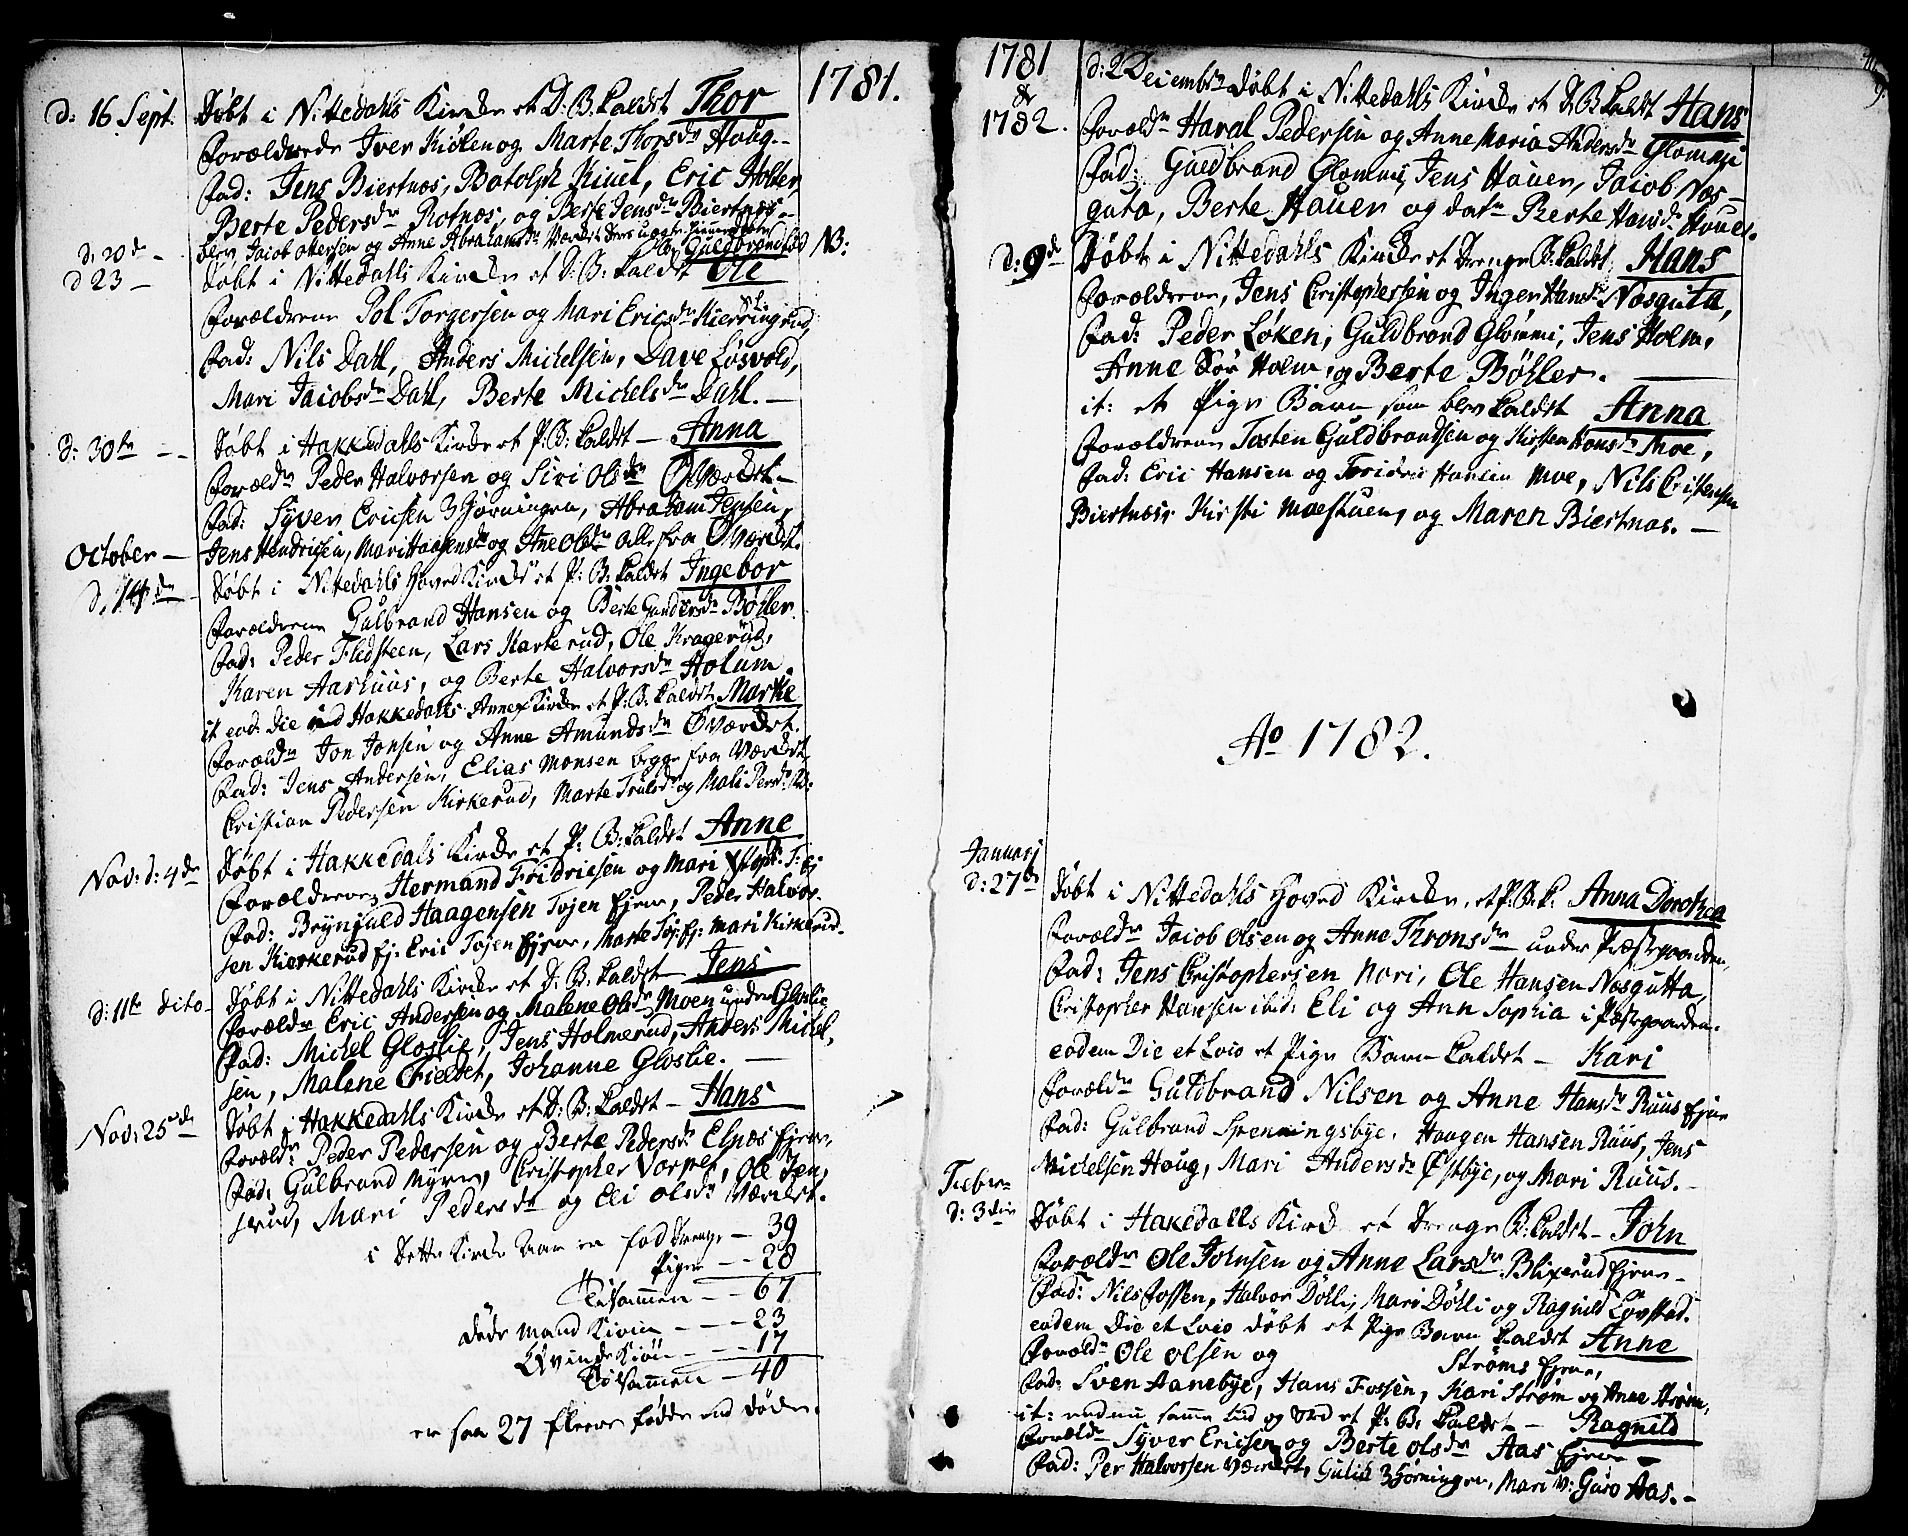 1781.
d: 16 Sept. Døbt i Nittedahls Kircke et D: B: kaldet Thor
Forældrene Iver Kiølen og Marte Thorsdr Houg.
Fad: Jens Biertnæs, Botolph Kiuel, Eric Holter,
Berte Pedersdr Rotnæs, og Berte Jensdr Biertnæs.
d: 20de blev Jacob Ottersen og Anne Abrahamsdr Værdit Deres uægte
Guldbrand NB:
d 23 Døbt i Nittedahls Kircke et D: B: kaldet Ole
Forældrene Pol Torgersen og Mari Ericsdr Kierringrud,
Fad: Nils Dahl, Anders Michelsen, Dave Løsvold,
Mari Jacobsdr Dahl, Berte Michelsdr Dahl.
d: 30te Døbt i Hakkedahls Kircke et P: B: kaldet Anna
Foræld: Peder Halvorsen og Siri Olsdr Ø Værdet
Fad: Syver Ericsen Hørningen, Abraham Jensen,
October Jens Hendricsen, Mari Haagensdr og Ane Olsdr alle fra Ø Værdet.
d. 14de Døbt i Nittedahls Hoved Kircke et P: B: kaldet Ingebor
Forældrene Gulbrand Hansen og Berte Gundersdr Bøhler.
Fad: Peder Fledsteen, Lars Karterud, Ole Kragerud,
Karen Aarhuus, og Berte Halvorsdr Holum.
it eod: Die ved Hakkedahls Annex Kircke et P: B: kaldet Marte
Foræld: Jon Jonsen og Anne Amundsdr Ø Værdet
Fad: Jens Andersen, Elias Monsen begge fra Værdet,
Cristian Pedersen Kirkerud, Marte Trulsdr og Mali Persdr ibd:
Nov: d: 4de Døbt i Hakkedals Kircke et P: B: kaldet Anne
Forældrene Hermand Fridricsen og Mari T: Ej
Fad: Brynfuld Haagensen Tøjen Ejere, Peder Halvor-
sen Kierkerud Ej: Eric Tøjen Ejere, Marte Tøj: Ej: Mari Kirkerud.
d: 11te dito Døbt i Nittedahls Kircke et D: B: kaldet Jens
Foræld: Eric Andersen og Malene Olsdr Moen under Gloslie
Fad: Michel Gloslie, Jens Holmerud, Anders Michel,
sen, Malene Criedet, Johanne Gloslie.
Nov: 25de Døbt i Hakkedahls Kircke et D: B: kaldet Hans
Foræld: Peder Pedersen og Berte Pedersdr Elnæs Ejere,
Fad: Gulbrand Myren, Cristopher Varpet, Ole Jen,
serud, Mari Pedersdr og Eli Olsdr Værdet.
i Dette Kircke Aar er fød Drenge 39
Piger 28
Tilsammen 67
Døde Mand Kiøn 23
Qvinde Kiøn 17
Tilsammen 40
er saa 27 fleere fødde end døde.
1781
&
1782.
d: 2 Decembr Døbt i Nittedahls Kircke et D: B: kaldet Hans
Forældr Haral Pedersen og Anne Maria Andersdr Glommi
Fad: Guldbrand Glommi, Jens Hauer, Jacob Næs-
guta, Berte Hauer og datr Berte Hansdr Houer.
d: 9de Døbt i Nittedahls Kircke et Drenge B: kaldet Hans
Forældrene, Jens Cristophersen og Inger Hansdr Næsguta,
Fad: Peder Løken, Guldbrand Glømmi, Jens Holm,
Anne Sør Holm, og Berte Bøhler.
it: et Pige Barn som blev kaldet Anna
Forældrene Tosten Guldbrandsen og Kirsten Hansdr Moe,
Fad: Eric Hansen og Fridric Hansen Moe, Nils Cristensen
Biertnæs, Kirsti Moestuen, og Maren Biertnæs.
Ao 1782.
Januarj
d: 27de Døbt i Nittedahls Hoved Kircke, et P: B: k: Anna Dorothea
Foræld: Jacob Olsen og Anne Thronsdr under Præstgaarden,
Fad: Jens Cristophersen Nori, Ole Hansen Næsgutta,
Cristopher Hansen ibid: Eli og Ann Sophia i Præstgaarden.
eodem Die et Loco et Pige Barn kaldet Kari
Foræld: Guldbrand Nilsen og Anne Hansdr Ruus Ejere
Fad: Gulbrand Spenningsbye, Haagen Hansen Ruus, Jens
Michelsen Houg, Mari Andersdr Østbye, og Mari Ruus.
Febr.
d: 3die Døbt i Hakedalls Kirck et Drenge B: kaldet John
Foræld: Ole Johnsen og Anne Larsdr Blixerud Ejere
Fad: Nils Fossen, Halvor Døhli, Mari Døhli og Ragnild Løvstad.
eodem Die et Loco døbt et Pige Barn kaldet Anne
Foræld: Ole Olsen og Strøms Ejere,
Fad: Sven Aanebye, Hans Fossen, Kari Strøm og Anne Strøm,
it: endnu samme tid og sted et P: B: kaldet Ragnild
Foræld: Syver Ericsen og Berte Olsdr Aas Ejere
Fad: Per Halvorsen Værdet, Gulik Hørningen, Mari V: Guro Aas.